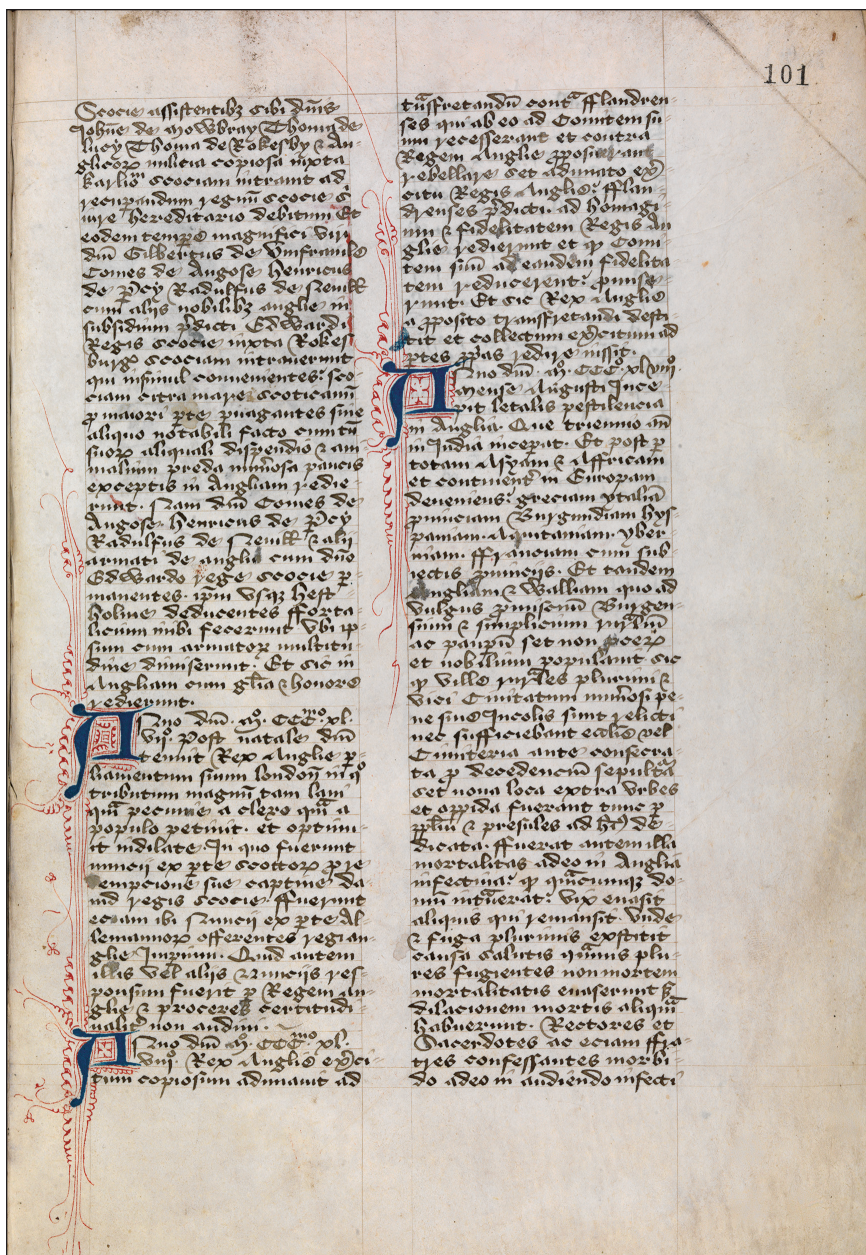 101
Scocie assistentibꝫ sibi dn̄is
Joħne de Mowbray Thoma de
lucy Thoma de Rokesby ⁊ An
glicoꝝ milicia copiosa iuxta
Karlioꝉ scociam intrant ad
recuperandum regnū scocie s
iure hereditario debitum Et
eodem tempe magnifici viri
dn̄i Gilbertus de Vmframilo
Comes de Angose henricus
de p̄cy Radulfus de Neuiꝉꝉ
cum alijs nobilibꝫ anglie in
subsidium p̄dicti Edwardi
Regis scocie iuxta Rokes
burgℏ scociam intrauerunt
qui insimul conuenientes sco-
ciam citra mare scoticanū
ꝓ maiori ꝑte ꝑuagantes sine
aliquo notabili facto cum tn̄
suoꝝ aliquali dispendio ⁊ ani-
malium preda nūosa paucis
exceptis in Angliam redie-
runt. Nam dn̄i Comes de
Angose henricus de p̄cy
Radulfus de Neuiꝉꝉ ⁊ alij
armati de anglia cum dn̄o
Edwardo rege scocie ꝑ-
manentes. ip̄m vsqꝫ hest
holme deducentes fforta-
licium inibi fecerunt vbi ip-
sum cum armatoꝝ multitu-
dine dimiserunt. Et sic in
Angliam cum glīa ⁊ honore
redierunt.
Anno dn̄i. M. CCC.mo xl.
vij. Post natale dn̄i
tenuit Rex Anglie ꝑ-
liamentum suum londoñ in qo
tributum magnū tam lane
qm̄ pecunie a clero qm̄ a
populo petiuit. et optinu-
it indilate. In quo fuerunt
nuncij ex ꝑte scottoꝝ ꝓ re
empcione sue captiue da-
uid regis scocie. ffuerunt
eciam ibi Nuncij ex ꝑte Al-
lemannoꝝ offerentes regi an-
glie Imperium. Quid autem
illis vel alijs Nuncijs res-
ponsum fuerit ꝑ Regem an-
glie ⁊ proceres certitudi-
naliter non audiui.
Anno dn̄i M. CCC.mo xl.
viij. Rex Anglie ex̄ci-
tum copiosum adunauit ad
tn̄sfretandū contra fflandren-
ses qui ab eo ad Comitem su-
um recesserant et contra
Regem Anglie ꝓposuerant
rebellare set adunato ex̄-
citu Regis Anglie fflan-
drenses p̄dicti. ad homagi-
um ⁊ fidelitatem Regis An
glie redierunt et qꝫ Comi-
tem suū ad eandem fidelita
tem reducerent ꝓmise-
runt. Et sic Rex Anglie
a ꝓposito transfretandi desti-
tit et collectum ex̄citum ad
ꝑtes ꝓp̄as redire iussit.
Anno dn̄i. M. CCC. xlviij
mense Augusti Ince-
pit letalis pestilencia
in Anglia. Que triennio an̄
in India inceperat. Et post ꝑ
totam Asyam ⁊ Affricam
et continenter in Europam
deueniens greciam ytaliā
ꝓuinciam Burgundiam hys-
paniam. Aquitaniam. yber-
niam. ffranciam cum sub-
iectis ꝓuincijs. Et tandem
Angliam ⁊ Walliam quo ad
vulgus ꝓmiscuū Burgen-
sium ⁊ simplicium ruraliū
ac pauꝑum set non ꝓceꝝ
et nobilium populauit sic
qꝫ ville rurales plurime ⁊
vici Ciuitatum nūosi pe-
ne sine Incolis sunt relicti
nec sufficiebant ecclie vel
Cimiteria ante consecra-
ta ꝓ decedenciū sepultā
set noua loca extra vrbes
et oppida fuerant tunc ꝑ
pp̄lm̄ ⁊ presules ad hoc de-
dicata. ffuerat autem illa
mortalitas adeo in Anglia
infectiua qꝫ qm̄cunqꝫ do-
mū intrauerat vix euasit
aliquis qui remansit. vnde
⁊ fuga plurimis exstitit
causa salutis qm̄uis plu-
res fugientes non mortem
mortalitatis euaserunt set
dilacionem mortis aliqm̄
habuerunt. Rectores et
Sacerdotes ac eciam ffra-
tres confessantes morbi-
do adeo in audiendo infecti